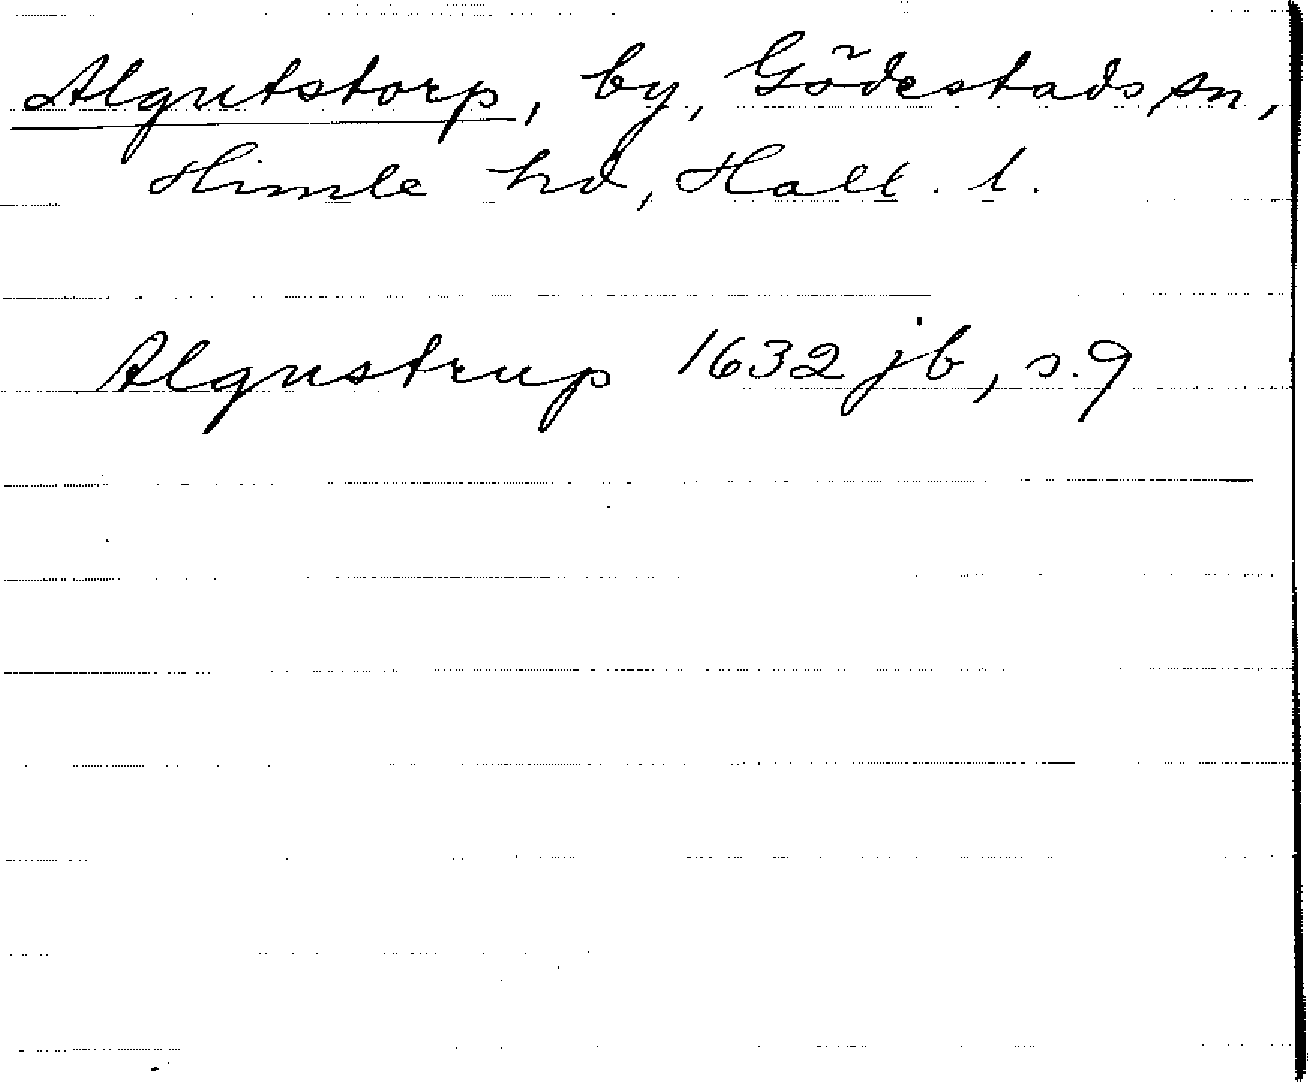 Algutstorp, by, Gödestads sn,
Himle hd, Hall. l.
Algustrup 1632 jb, s. 9